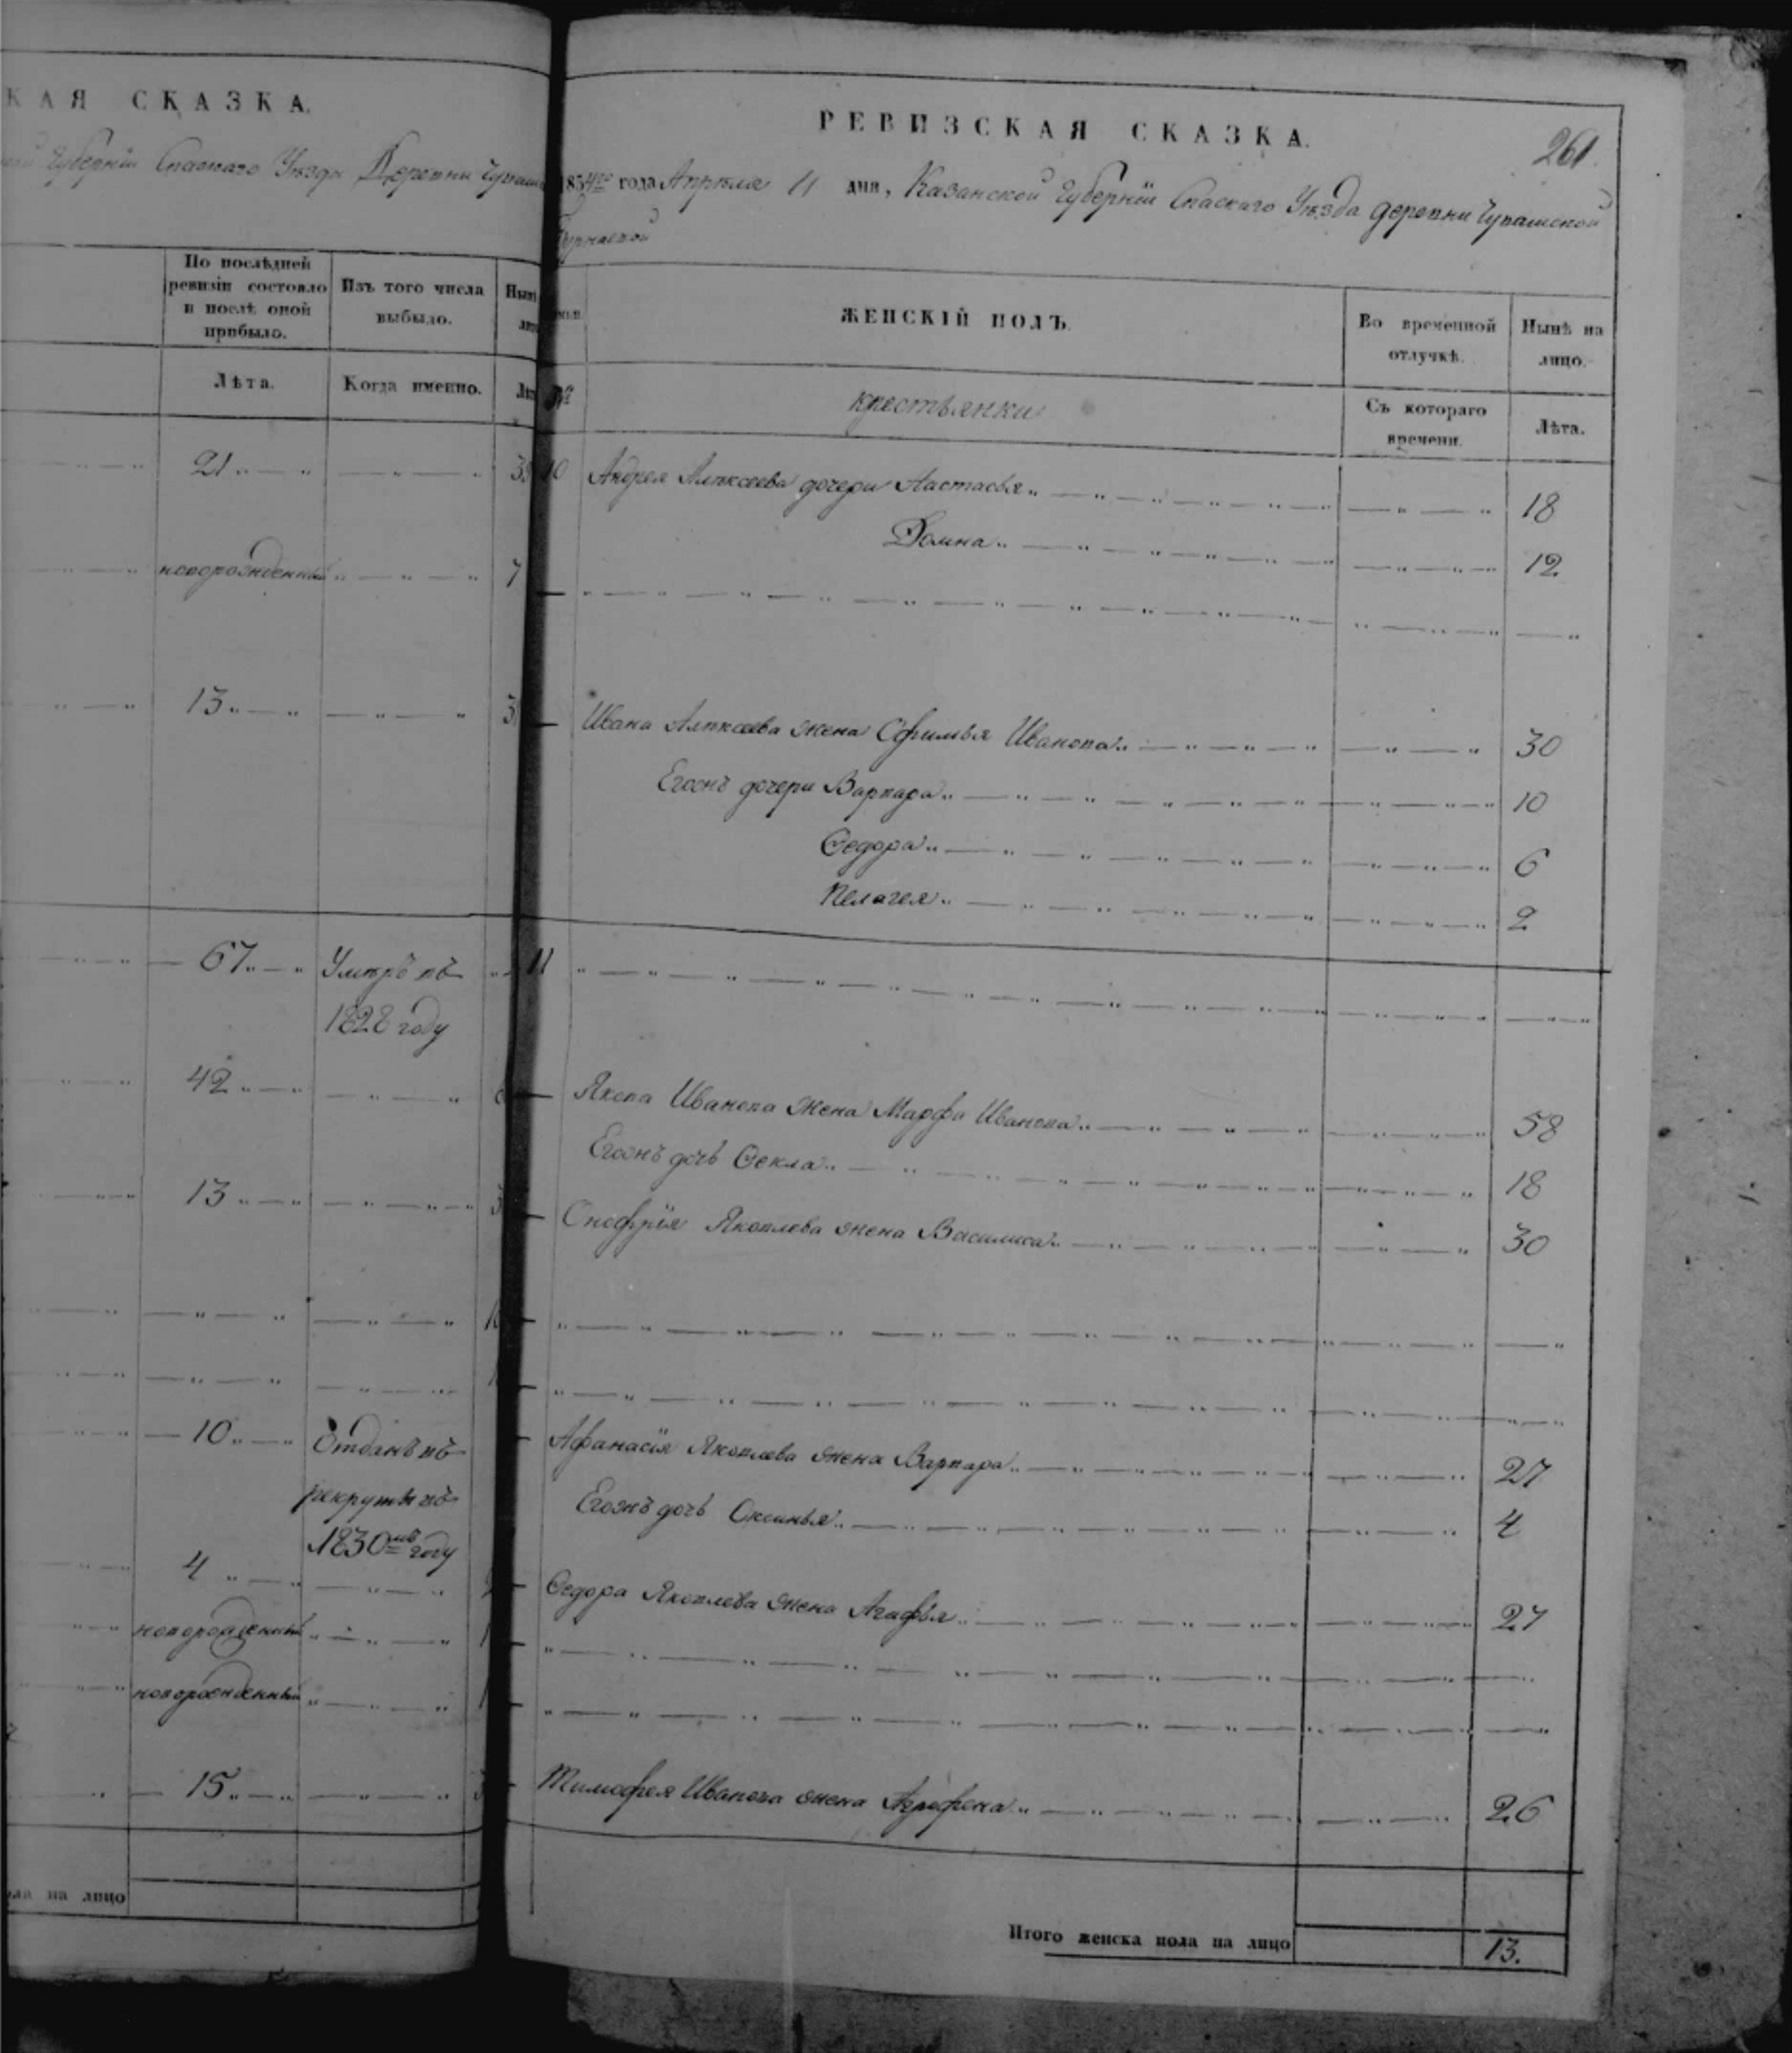 КАЯ СКАЗКА.
Губернiи Спаскаго Уѣзда Деревни Чуваш
По послѣдней ревизiи состояло и послѣ оной прибыло.
Изъ того числа выбыло.
Лѣта.
Когда именно.
21
новорожденный 7
13
67 Умеръ въ
1828 году
42
13
10 Отданъ въ
рекруты въ
1830мъ году
4
новорожденный
новорожденный
15
на лицо
РЕВИЗСКАЯ СКАЗКА.
261.
1834го года Апреля 11 дня, Казанской Губернiи Спаскаго Уѣзда деревни Чувашской
ЖЕНСКIЙ ПОЛЪ.
Во временной отлучкѣ.
Нынѣ на лицо.
№
крестьянки
Съ котораго времени.
Лѣта.
10 Андрея Алексеева дочери Настасья 18
Домна 12
Ивана Алексеева жена Офимья Иванова 30
Егоонъ дочери Варвара 10
Ѳедора 6
Пелагея 2
11
Якова Иванова жена Марфа Иванова 58
Егоонъ дочь Ѳекла 18
Онофрiя Яковлева жена Василиса 30
Афанасiя Яковлева жена Варвара 27
Егоонъ дочь Оксинья 4
Ѳедора Яковлева жена Агафья 27
Тимофея Иванова жена Агрофена 26
Итого женска пола на лицо 13.